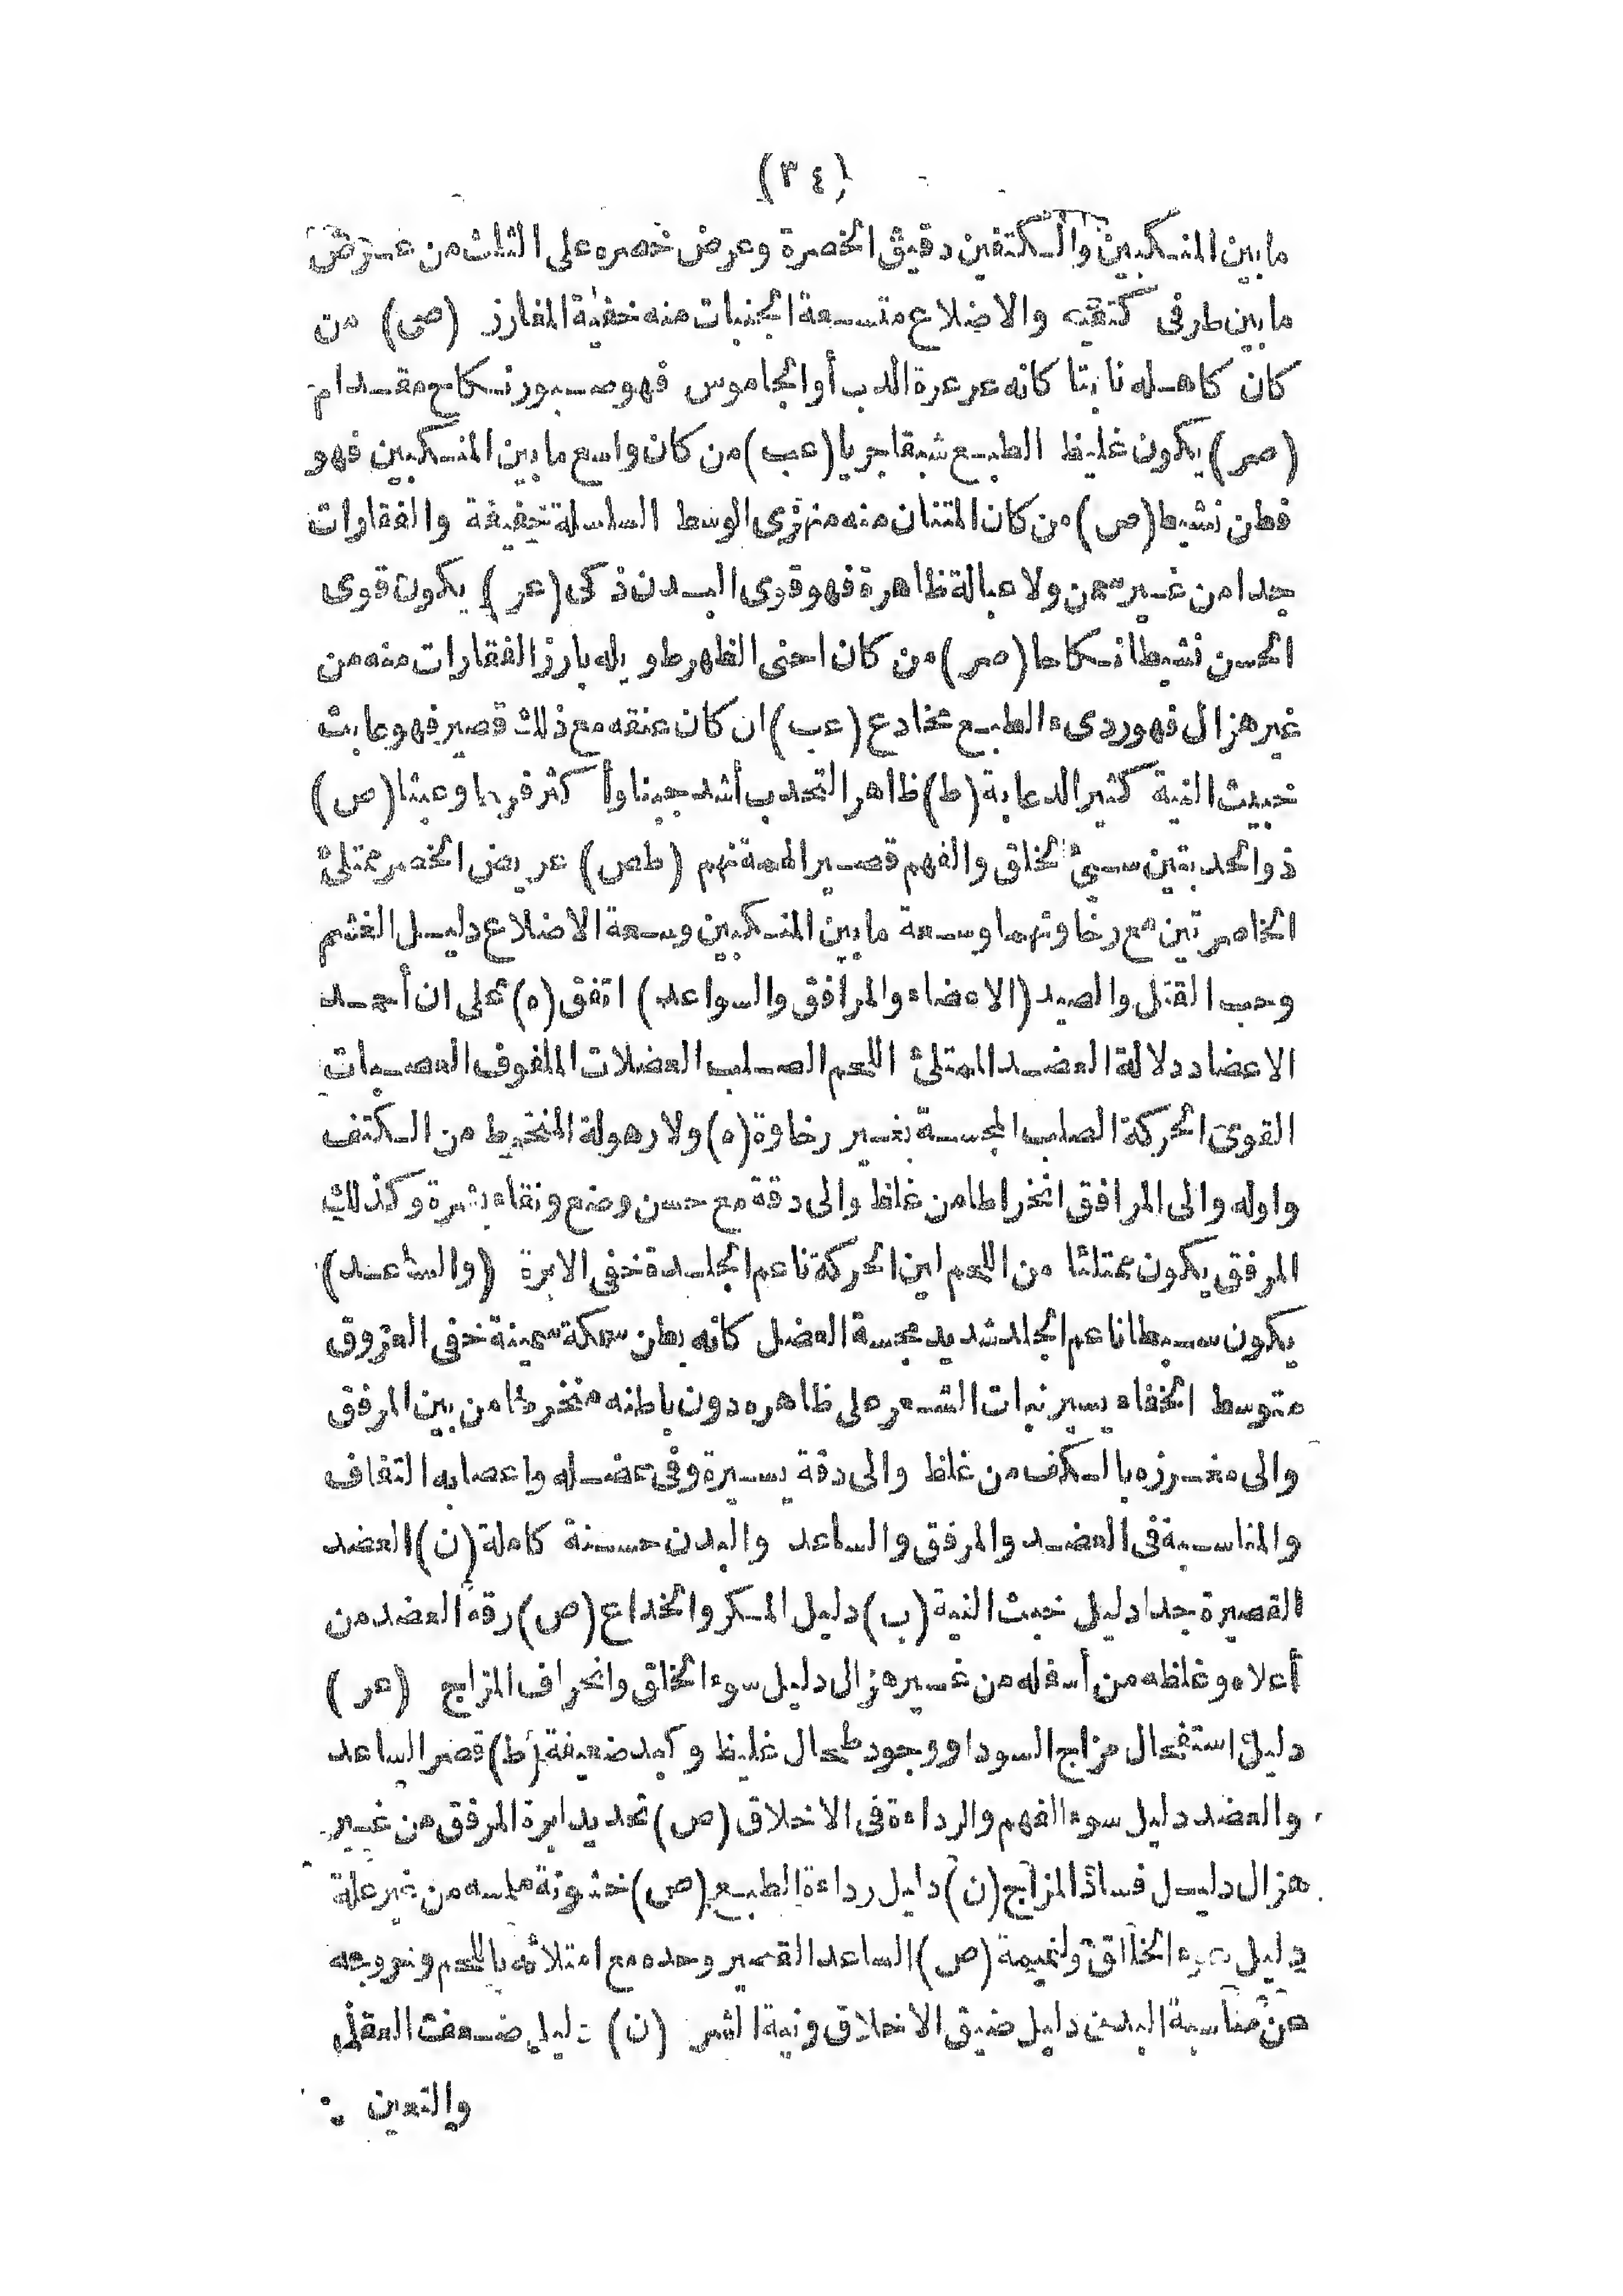 (٣٤)
ما بين المنكبين والكتفين دقيق الخصرة وعرض خصره على الثلث من عرض
ما بين طرفى كتفيه والاضلاع متسعة الجنبات منه خفية المغارز (ص) من
كان كاهله ناتئا كانه عرعرة الدب أو الجاموس فهو صبور نكاح مقدام
(صر) يكون غليظ الطبع شبقا جريا (عب) من كان واسع ما بين المنكبين فهو
فطن نشيط (ص) من كان المتنان منه منزوى الوسط السلسلة خفيفة والفقارات
جدا من غير سمن ولا عبالة ظاهرة فهو قوى البدن ذكى (عر) يكون قوى
الحس نشيطا نكاحا (صر) من كان احنى الظهر طويله بارز الفقارات منه من
غير هزال فهو ردىء الطبع مخادع (عب) ان كان عنقه مع ذلك قصير فهو عابث
خبيث النية كثير الدعابة (ط) ظاهر التحدب أشد جبنا وأكثر فرها وعبثا (ص)
ذو الحدبتين سيئ الخلق والفهم قصير الهمة نهم (طص) عريض الخصر ممتلئ
الخاصرتين مع رخاوتهما وسعة ما بين المنكبين وسعة الاضلاع دليل الغشم
وحب القتل والصيد (الاعضاء والمرافق والسواعد) اتفق (ه) على ان أحمد
الاعضاد دلالة العضد الممتلئ اللحم الصلب العضلات الملفوف العصبات
القوى الحركة الصلب المجسة بغير رخاوة (ه) ولا رهولة المنخرط من الكتف
واوله والى المرافق انخراطا من غلظ والى دقة مع حسن وضع ونقاء بشرة وكذلك
المرفق يكون ممتلئا من اللحم لين الحركة ناعم الجلدة خفى الابرة (والساعد)
يكون سبطا ناعم الجلد شديد مجسة العضل كانه بطن سمكة سمينة خفى العروق
متوسط الخفاء يسير نبات الشعر على ظاهره دون باطنه منخرطا من بين المرفق
والى مغرزه بالكف من غلظ والى دقة يسيرة وفى عضله واعصابه التفاف
والمناسبة فى العضد والمرفق والساعد والبدن حسنة كاملة (ن) العضد
القصيرة جدا دليل خبث النية (ب) دليل المكر والخداع (ص) رقة العضد من
أعلاه وغلظه من أسفله من غير هزال دليل سوء الخلق وانحراف المزاج (عر)
دليل استفحال مزاج السودا ووجود طحال غليظ وكبد ضعيفة (ط) قصر الساعد
والعضد دليل سوء الفهم والرداءة فى الاخلاق (ص) تحديد ابرة المرفق من غير
هزال دليل فساد المزاج (ن) دليل رداءة الطبع (ص) خشونة ملمسه من غير علة
دليل سوء الخلاق ولنميمة (ص) الساعد القصير وحده مع امتلائه باللحم وخروجه
عن مناسبة البدن دليل ضيق الاخلاق ونية الشر (ن) دليل ضعف العقل
والتعين